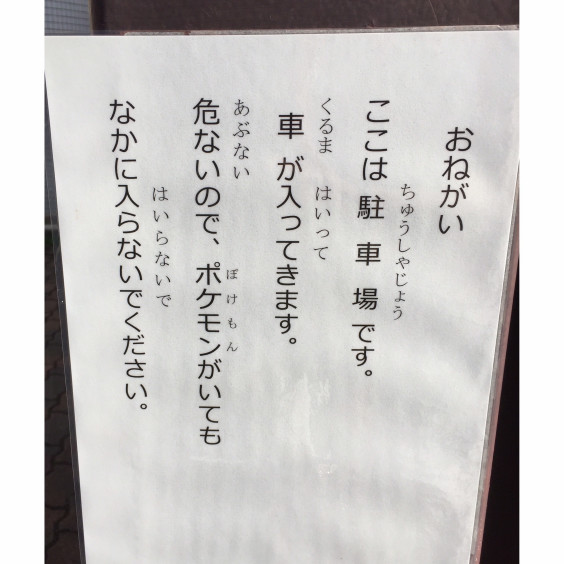 おねがい
ちゅうしゃじょう
ここは駐車場です。
くるま はいって
車が入ってきます。
あぶない ぽけもん
危ないので、ポケモンがいても
はいらないで
なかに入らないでください。